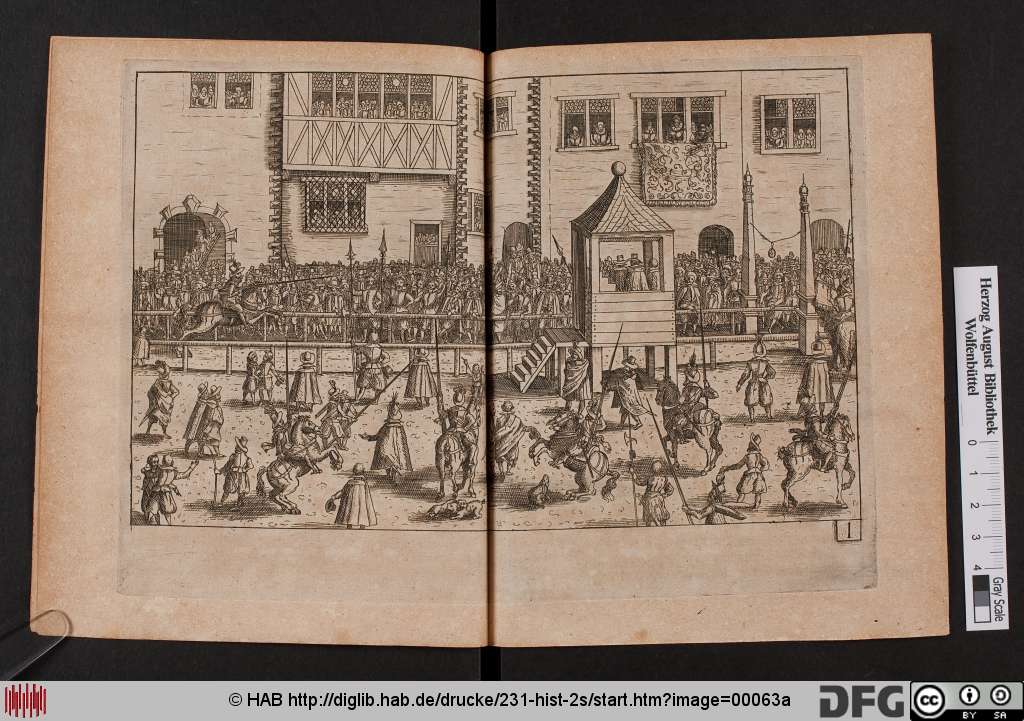 1
Herzog August Bibliothek
Wolfenbüttel
0 1 2 3 4
Gray Scale
© HAB http://diglib.hab.de/drucke/231-hist-2s/start.htm?image=00063a
DFG
cc
BY SA